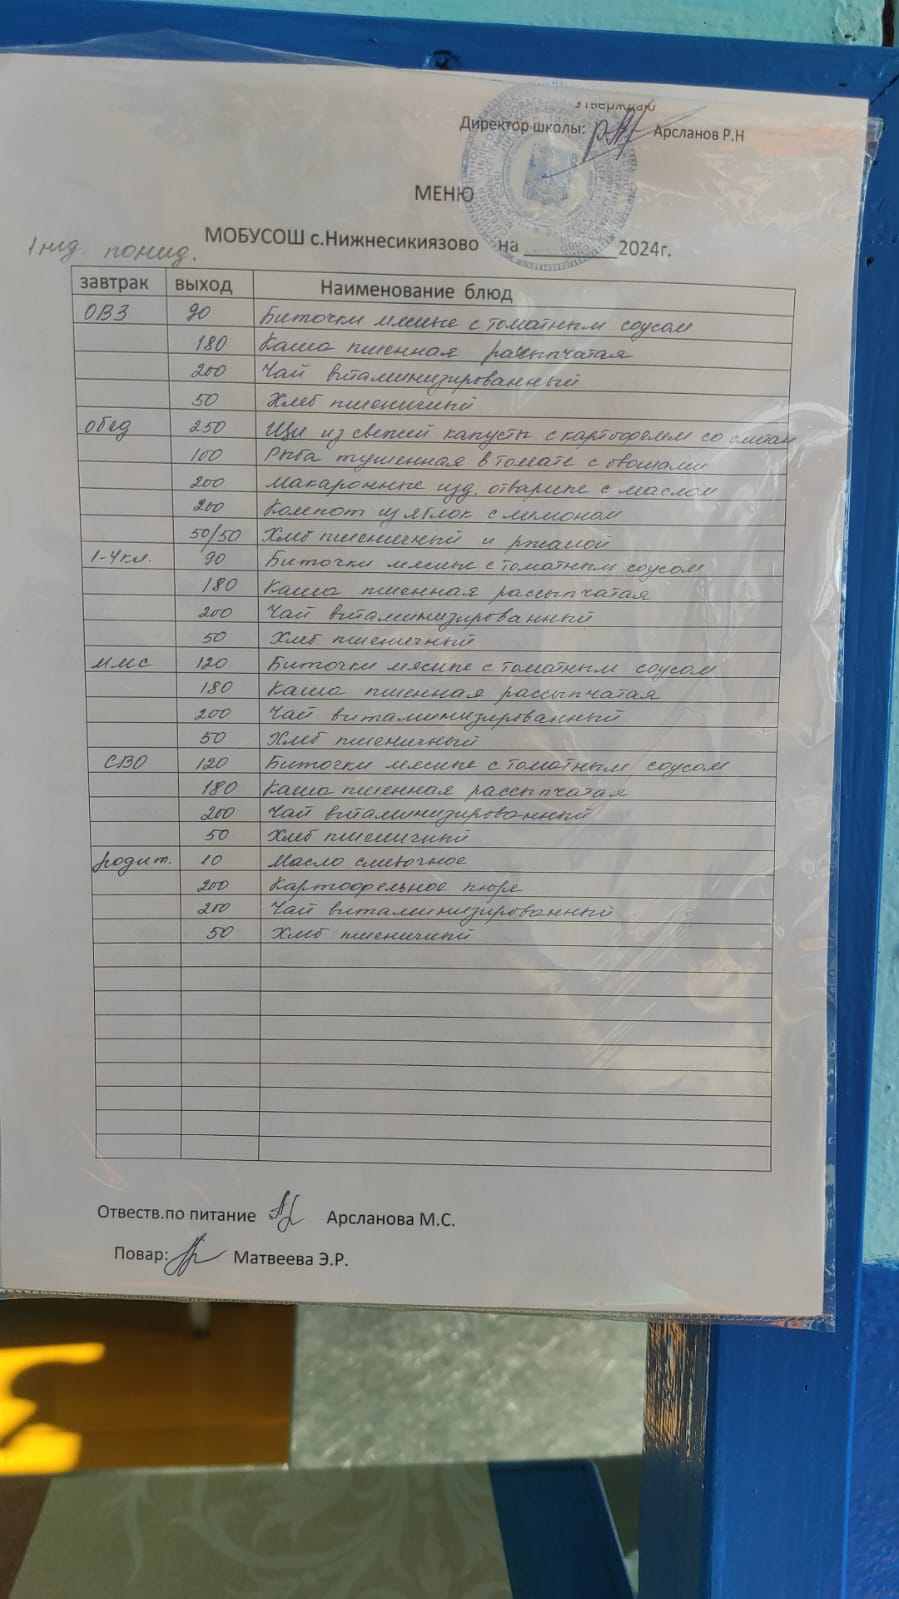 Утверждаю
Директор школы: Арсланов Р.Н
МЕНЮ
МОБУСОШ с.Нижнесикиязово на __________2024г.
1 нед. понид.
завтрак выход Наименование блюд
ОВЗ 90 Биточки мясные с томатным соусом
180 Каша пшенная рассыпчатая
200 Чай витаминизированный
50 Хлеб пшеничный
обед 250 Щи из свежей капусты с картофелем со сметан
100 Рыба тушенная в томате с овощами
200 Макаронные изд. отварные с маслом
200 Компот из яблок с лимоном
50/50 Хлеб пшеничный и ржаной
1-4кл. 90 Биточки мясные с томатным соусом
180 Каша пшенная рассыпчатая
200 Чай витаминизированный
50 Хлеб пшеничный
ммс 120 Биточки мясные с томатным соусом
180 Каша пшенная рассыпчатая
200 Чай витаминизированный
50 Хлеб пшеничный
СВО 120 Биточки мясные с томатным соусом
180 Каша пшенная рассыпчатая
200 Чай витаминизированный
50 Хлеб пшеничный
родит. 10 Масло сливочное
200 Картофельное пюре
200 Чай витаминизированный
50 Хлеб пшеничный
Ответств.по питание Арсланова М.С.
Повар: Матвеева Э.Р.